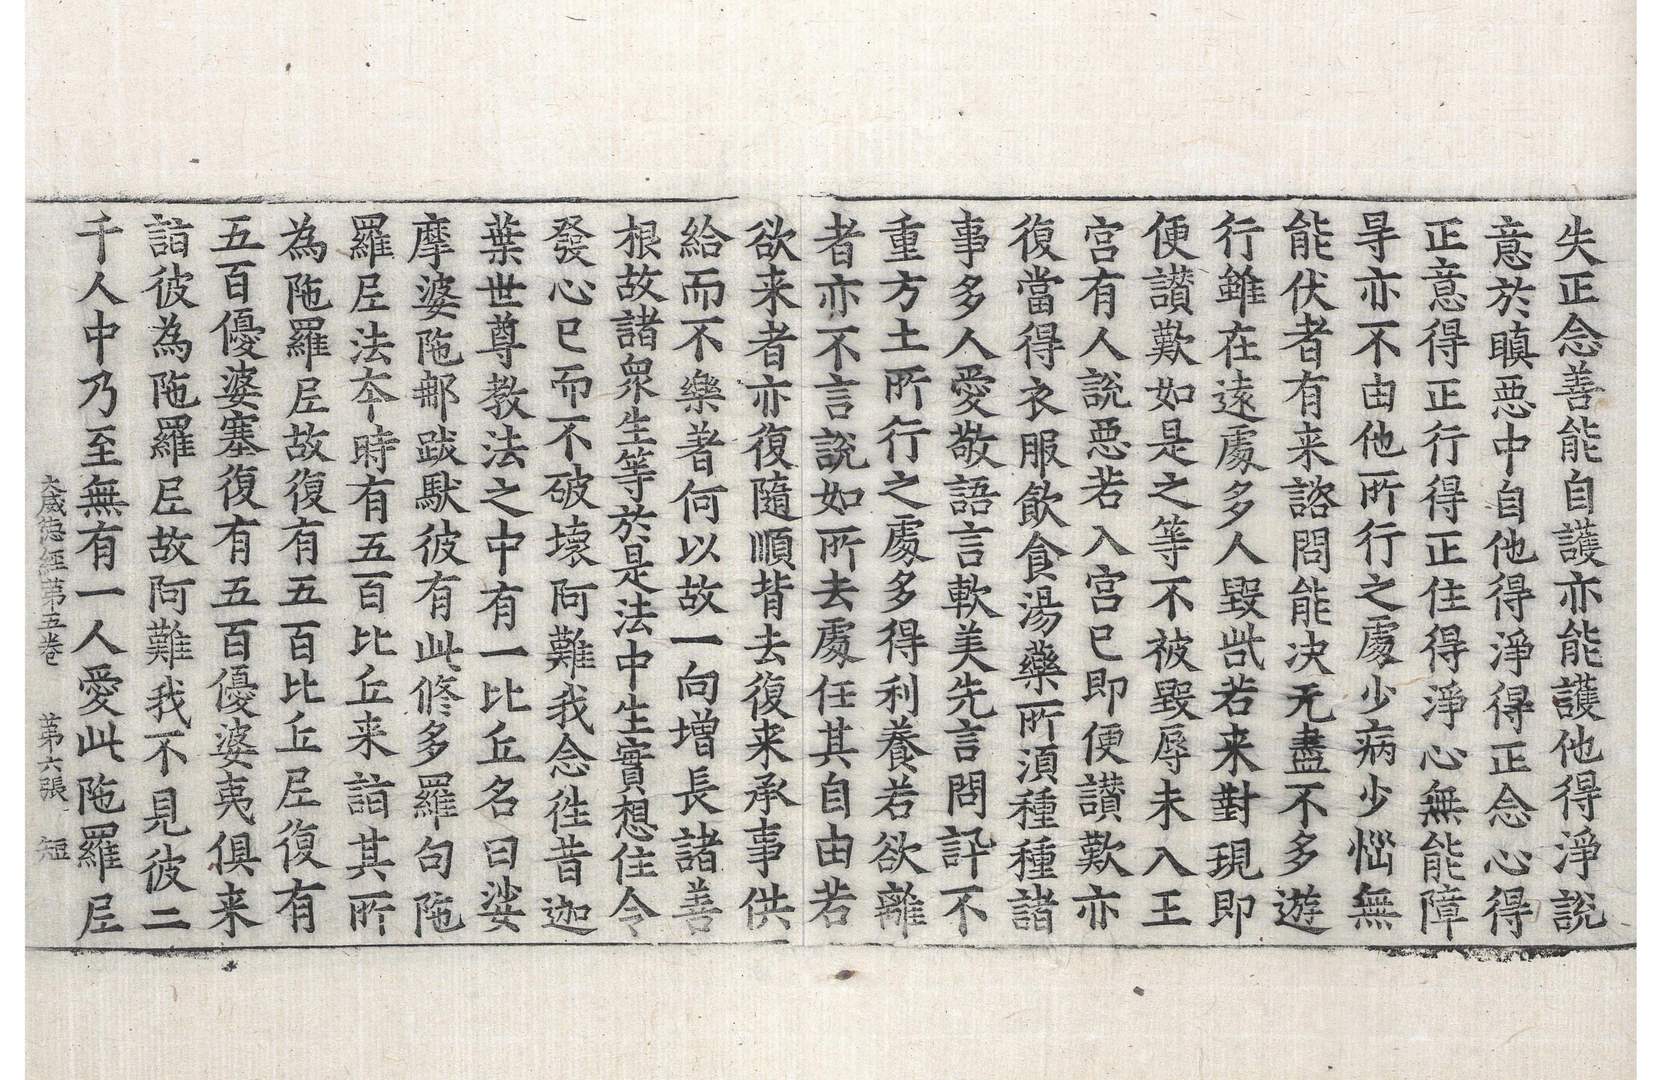 失正念善能自護亦能護他得淨說
意於瞋惡中自他得淨得正念心得
正意得正行得正住得淨心無能障
㝵亦不由他所行之處少病少惱無
能伏者有来諮問能决无盡不多遊
行雖在遠處多人毀呰若来對現即
便讃歎如是之等不被毀辱未入王
宮有人說惡若入宮已即便讃歎亦
復當得衣服飲食湯藥所湏種種諸
事多人愛敬語言軟美先言問訊不
重方土所行之處多得利養若欲離
者亦不言說如所去處任其自由若
欲来者亦復隨順背去復来承事供
給而不樂著何以故一向增長諸善
根故諸衆生等於是法中生實想住令
發心已而不破壞阿難我念徃昔迦
葉世尊教法之中有一比丘名曰娑
摩婆陁郍跋默彼有此修多羅句陁
羅尼法夲時有五百比丘来詣其所
為陁羅尼故復有五百比丘尼復有
五百優婆塞復有五百優婆夷俱来
詣彼為陁羅尼故阿難我不見彼二
千人中乃至無有一人愛此陁羅尼
大威德經第五卷　第六張　短